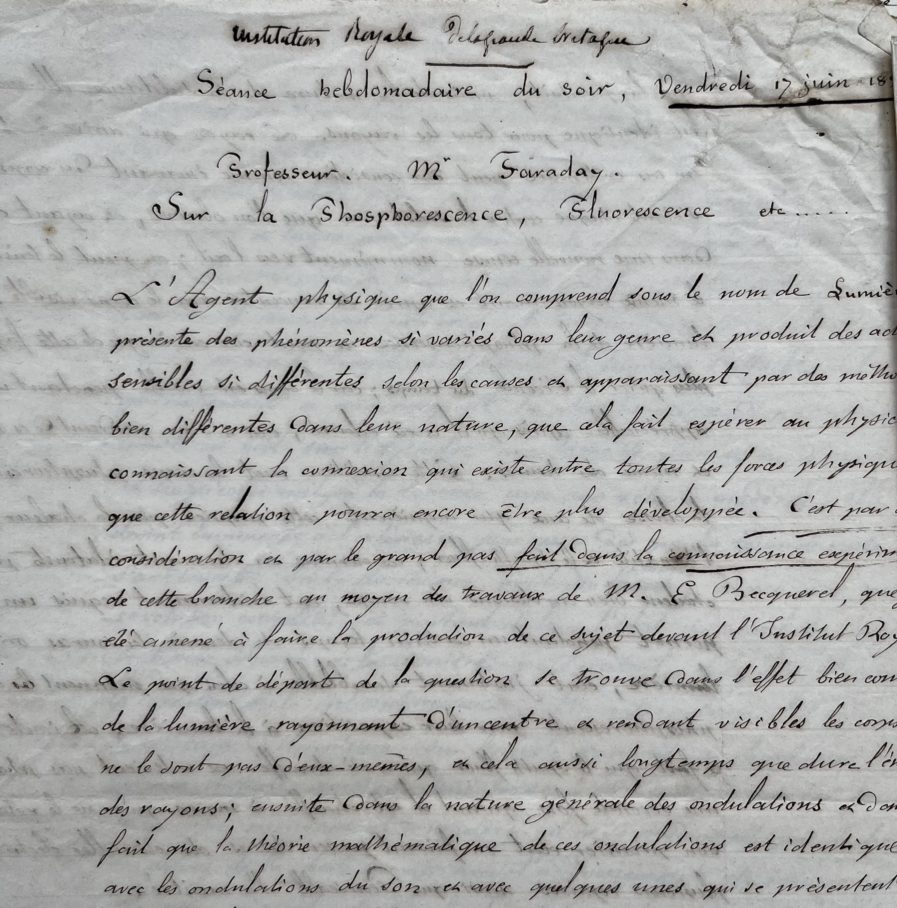 Institution Royale Delagrande bretagne
Séance hebdomadaire du soir, Vendredi 17 juin 18
Professeur. Mr Faraday.
Sur la Phosphorescence, Fluorescence etc.....
L'Agent physique que l'on comprend sous le nom de Lumiè
présente des phénomènes si variés dans leur genre et produit des ac
sensibles si différentes, selon les causes et apparaissant par des métho
bien différentes dans leur nature, que cela fait espérer au physic
connaissant la connexion qui existe entre toutes les forces physiqu
que cette relation pourra encore être plus développée. C'est par
considération et par le grand pas fait dans la connaissance expérim
de cette branche au moyen des travaux de M. E Becquerel, que
été amené à faire la production de ce sujet devant l'Institut Roy
Le point de départ de la question se trouve dans l'effet bien con
de la lumière rayonnant d'un centre et rendant visibles les corps
ne le sont pas d'eux-mêmes, et cela aussi longtemps que dure l'é
des rayons; ensuite dans la nature générale des ondulations et dan
fait que la théorie mathématique de ces ondulations est identique
avec les ondulations du son et avec quelques unes qui se présentent